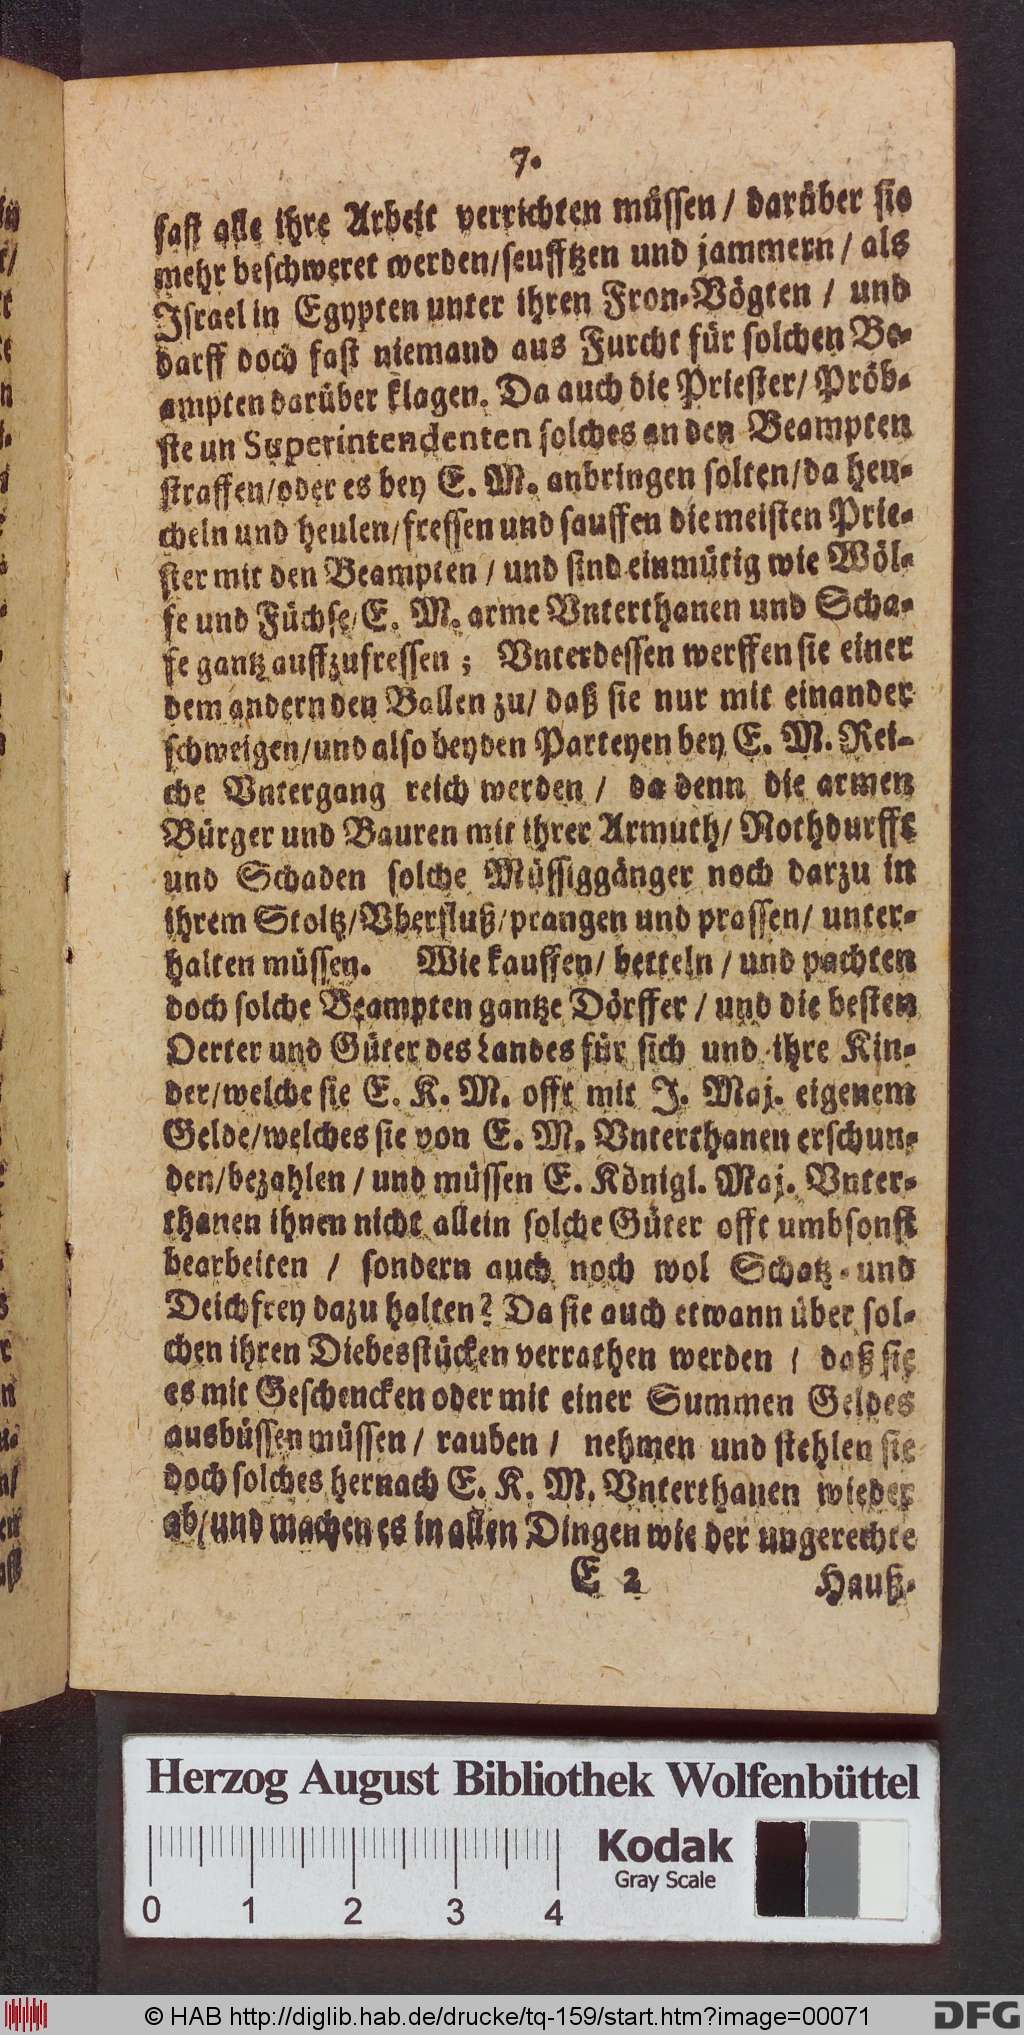 7.
fast alle ihre Arbeit verrichten müssen / darüber sie
mehr beschweret werden/seufftzen und jammern / als
Israel in Egypten unter ihren Fron-Vögten / und
darff doch fast niemand aus Furcht für solchen Be-
ampten darüber klagen. Da auch die Priester/ Pröb-
ste un Superintendenten solches an den Beampten
straffen/oder es bey E. M. anbringen solten/da heu-
cheln und heulen/fressen und sauffen die meisten Prie-
ster mit den Beampten / und sind einmütig wie Wöl-
fe und Füchse/E. M. arme Vnterthanen und Scha-
fe gantz auffzufressen ; Vnterdessen werffen sie einer
dem andern den Ballen zu/ daß sie nur mit einander
schweigen/und also beyden Parteyen bey E. M. Rei-
che Vntergang reich werden / da denn die armen
Bürger und Bauren mit ihrer Armuth/ Nothdurfft
und Schaden solche Müssiggänger noch darzu in
ihrem Stoltz/Vberfluß/prangen und prassen/ unter-
halten müssen. Wie kauffen/ betteln / und pachten
doch solche Beampten gantze Dörffer / und die besten
Oerter und Güter des Landes für sich und ihre Kin-
der/welche sie E. K. M. offt mit J. Maj. eigenem
Gelde/welches sie von E. M. Vnterthanen erschun-
den/bezahlen / und müssen E. Königl. Maj. Vnter-
thanen ihnen nicht allein solche Güter offt umbsonst
bearbeiten / sondern auch noch wol Schatz-und
Deichfrey dazu halten? Da sie auch etwann über sol-
chen ihren Diebesstücken verrathen werden / daß sie
es mit Geschencken oder mit einer Summen Geldes
ausbüssen müssen/ rauben / nehmen und stehlen sie
doch solches hernach E. K. M. Vnterthanen wieder
ab/und machen es in allen Dingen wie der ungerechte
E 2 Hauß-
Herzog August Bibliothek Wolfenbüttel
Kodak
Gray Scale
0 1 2 3 4
© HAB http://diglib.hab.de/drucke/tq-159/start.htm?image=00071
DFG